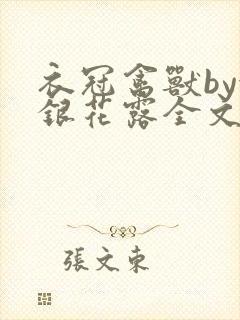 衣冠禽獸by
銀花露全文
張文束